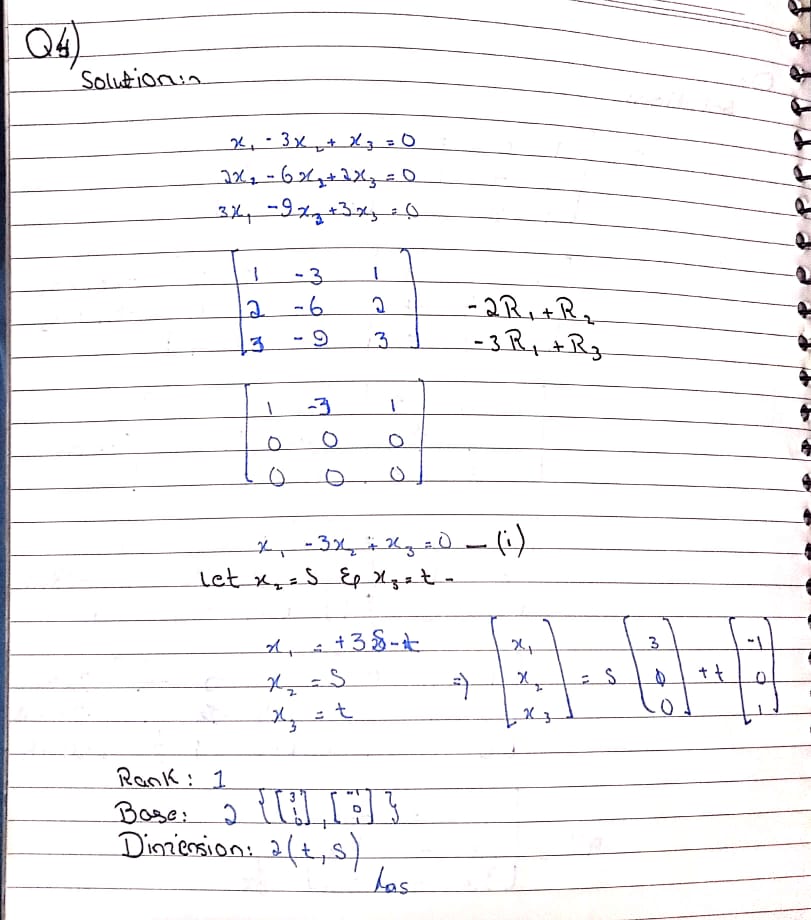 Q4)
Solution:~
x₁ - 3x₂ + x₃ = 0
2x₂ - 6x₂ + 2x₃ = 0
3x₁ - 9x₂ + 3x₃ = 0
1 -3 1
2 -6 2 -2R₁ + R₂
3 -9 3 -3R₁ + R₃
1 -3 1
0 0 0
0 0 0
x₁ - 3x₂ + x₃ = 0 — (i)
Let x₂ = S & x₃ = t -
x₁ = +3S - t [x₁ x₂ x₃] = S [3 0] + t [-1 0 1]
x₂ = S =>
x₃ = t
Rank: 1
Base: 2 {[3 1 0], [-1 0 1]}
Dimension: 2(t, s)